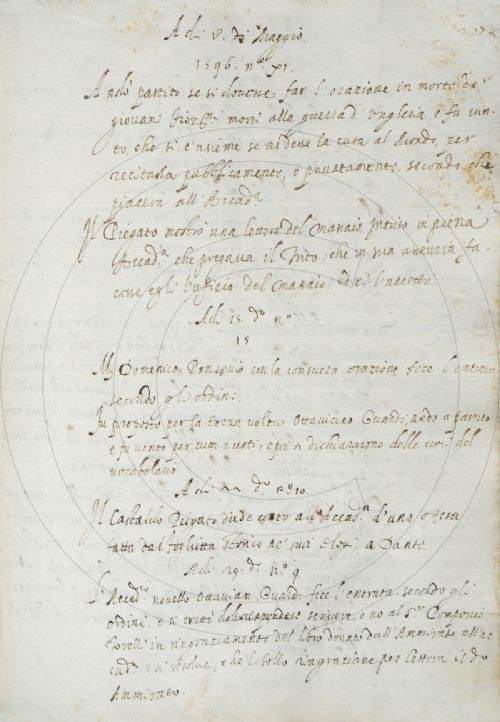 A di 8. di Maggio
1596. n.º XI.
Andò partito se si dovesse far l'orazione in morte de'
giovani morti alla guerra d'Ungheria, e fu vin-
to, che si e insieme se ne desse la cura al per
recitarla pubblicamente, o privatamente, secondo che
piacerà all'Accad.ª
Il Ripigato mostrò una lettera del in piena
Accad.ª che pregava il Trito, che in sua assenzia fa-
cesse egli l'uficio del ed ei l'accettò
A di 15. d.º n.º
15
M. Domenico con la consueta orazione fece l'entrata
secondo gli ordini:
Fu proposto per la terza volta Ottavio Guardi; andò a partito
e fu vinto per tutti i voti: e poi si dichiararono delle voci del
vocabolario
A di 22 d.º n.º 10.
Il Castaldo Ripigato diede conto all'Accad.ª d'una
fatta dal ne' suoi a Dante.
A di 29. d.º n.º 9
L'Accad.º novello Ottavian Guardi fece l'entrata secondo gli
ordini: e si trattò scrivere, o no al S.r
in ringraziamento del libro donato dall'Ammirato all'Ac-
cad.ª e si risolvé, che il Sollo ringraziasse per lettera il d.º
Ammirato.